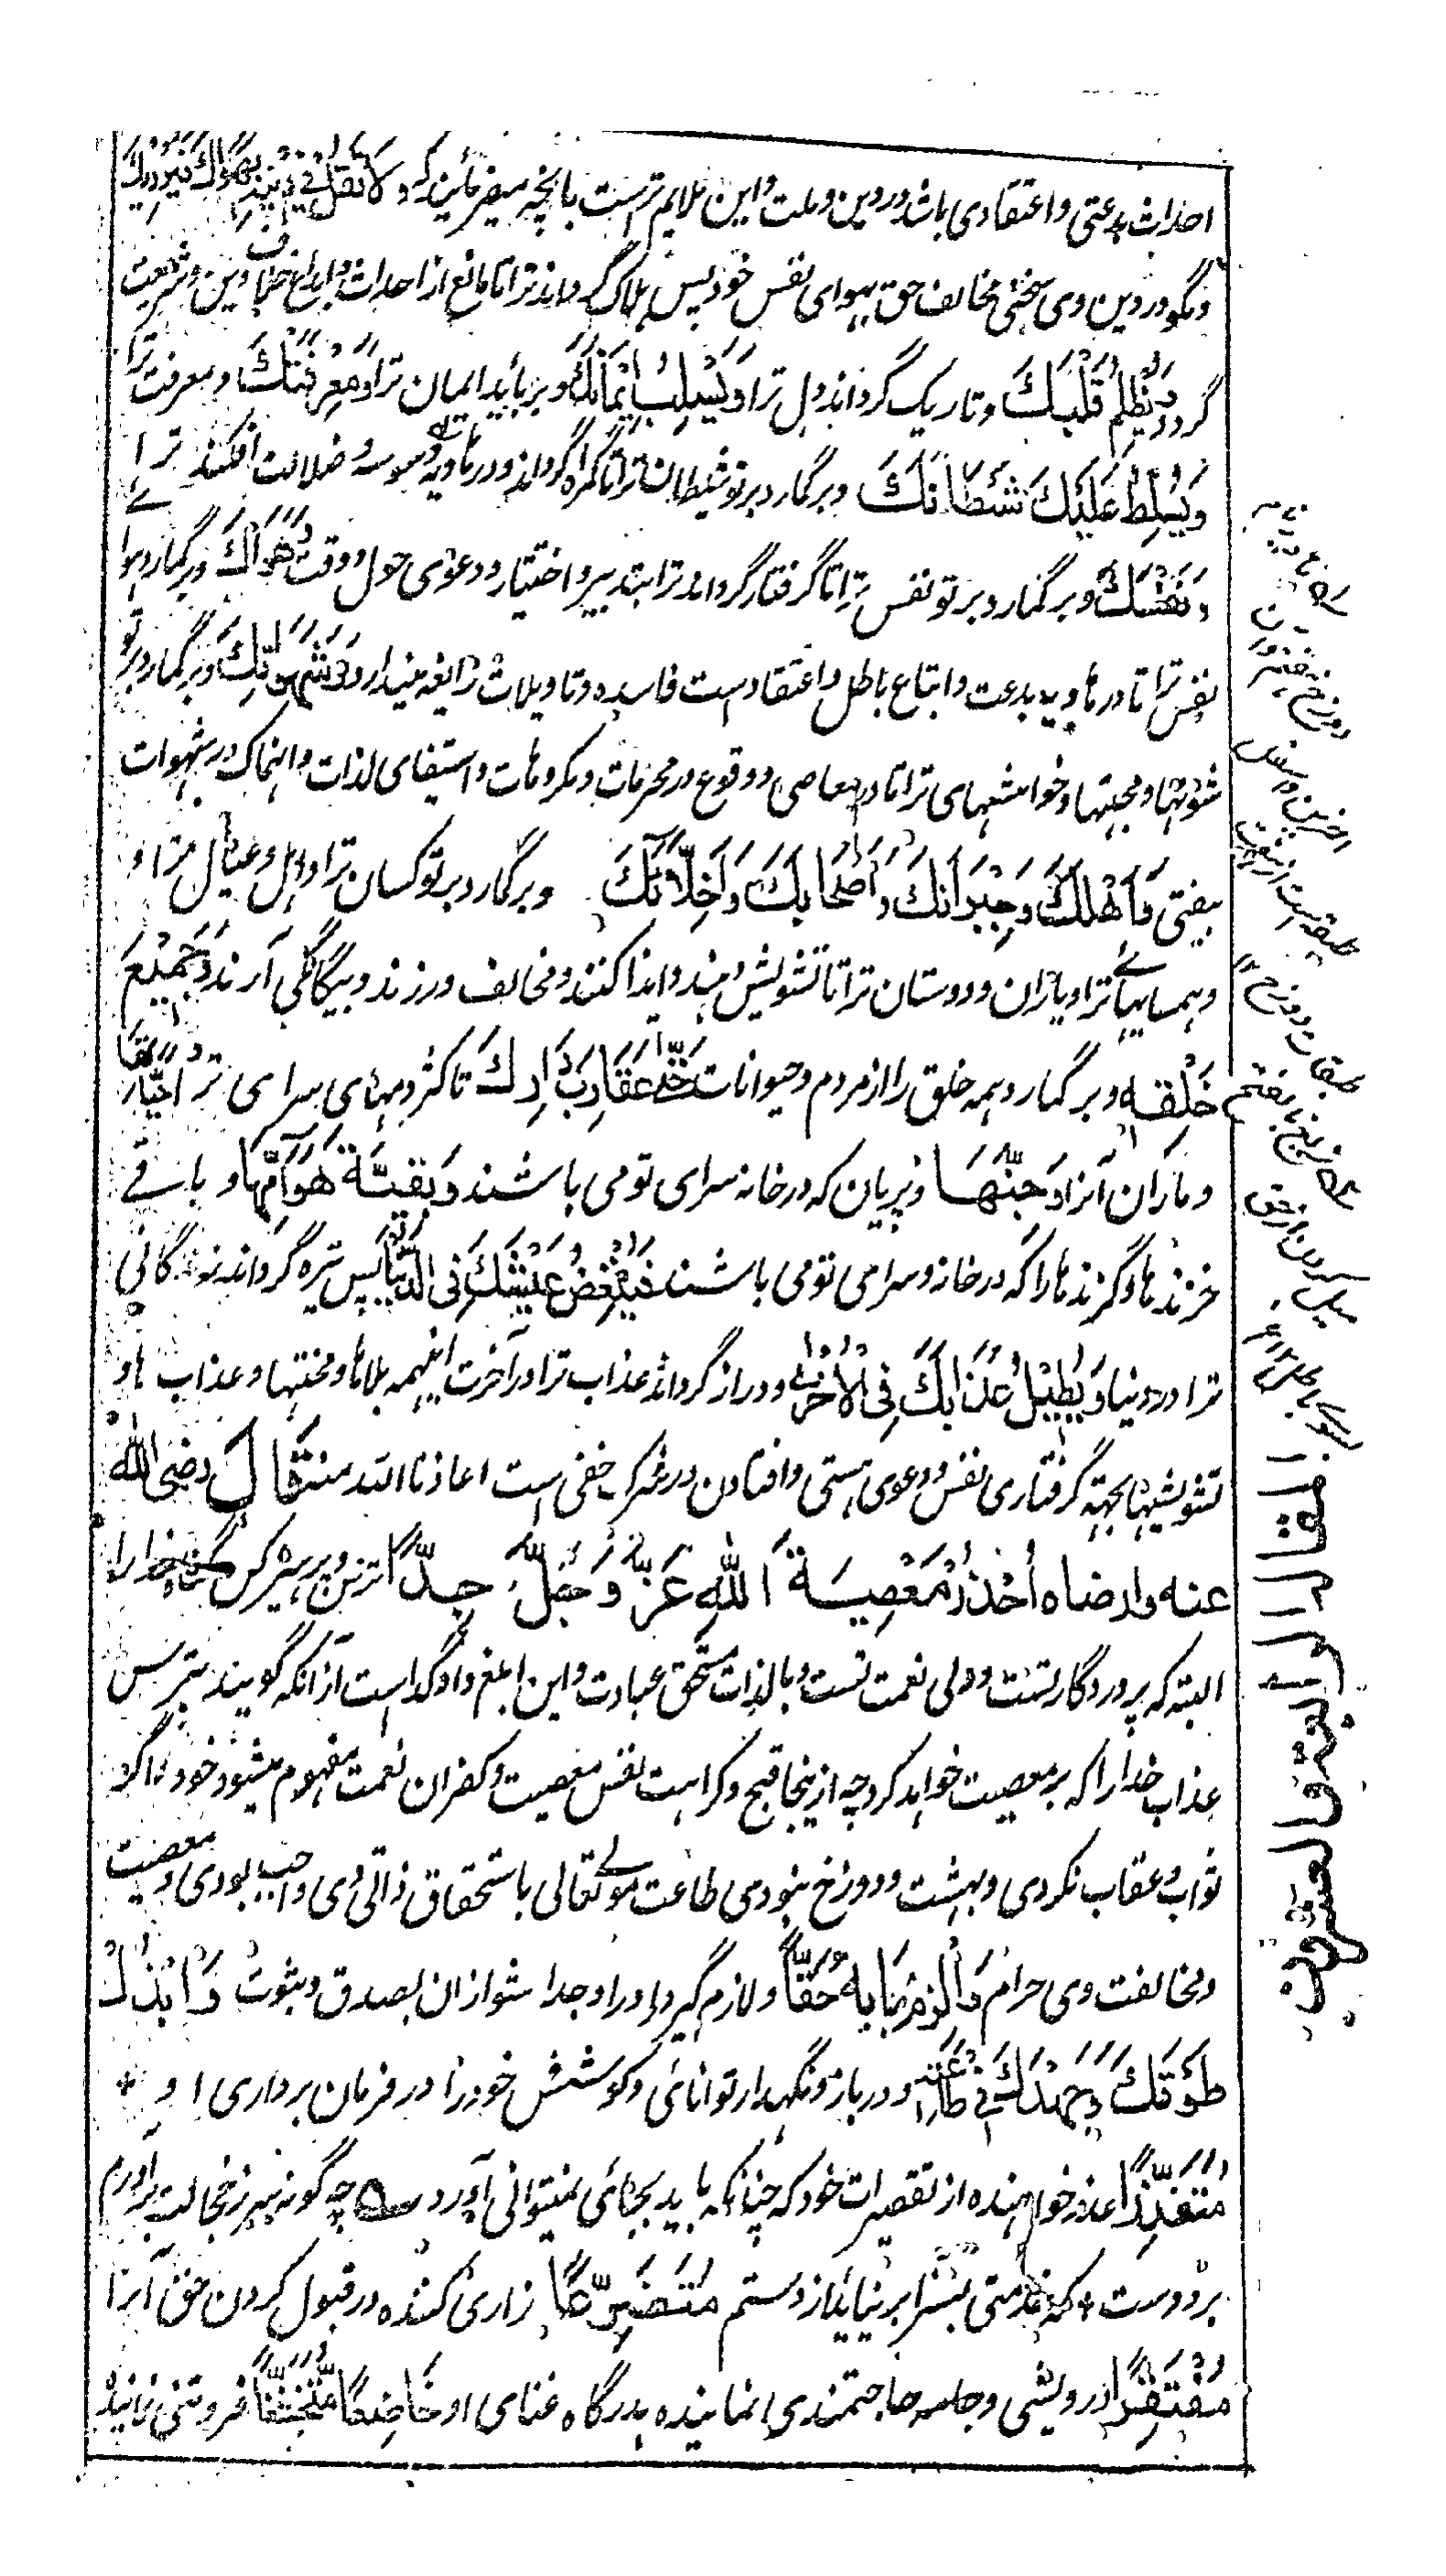 احداث بدعتی و اعتقادی باشد در دین و ملت و این ملایم ترست بانچه میفرمایند که وَلَا تَقُلْ فِي دِينِهِ بِهَوَاكَ فَيُرْدِيكَ
و مگو در دین وی سخنی مخالف حق بهوای نفس خود پس هلاک گرداند ترا تا مانع از احداث و ابداع خلاف دین و شریعت
گردد وَيُظْلِمَ قَلْبَكَ و تاریک گرداند دل ترا وَيَسْلِبَ إِيْمَانَكَ و برباید ایمان ترا وَمَعْرِفَتَكَ و معرفت ترا
وَيُسَلِّطَ عَلَيْكَ شَيْطَانَكَ و برگمارد بر تو شیطان ترا تا گمراه گرداند و در هاویه وسوسه و ضلالت افکند ترا
وَنَفْسَكَ و برگمارد بر تو نفس ترا تا گرفتار گرداند ترا بتدبیر و اختیار و دعوی حول و قوت وَهَوَاكَ و برگمارد هوای
نفس ترا تا در هاویه بدعت و اتباع باطل و اعتقادات فاسده و تاویلات زائغه بیندازد وَشَهَوَاتِكَ و برگمارد بر تو
شهوتها و محبتها و خواهشهای ترا تا در معاصی و وقوع در محرمات و مکروهات و استیفای لذات و انهماک در شهوات
بیفتی وَأَهْلَكَ وَجِيْرَانَكَ وَأَصْحَابَكَ وَأَخِلَّائَكَ و برگمارد بر تو کسان ترا و اهل و عیال ترا و
و همسایهای ترا و یاران و دوستان ترا تا تشویش دهند و ایذا کنند و مخالف ورزند و بیگانگی آرند وَجَمِيْعَ
خَلْقِهِ و برگمارد همه خلق را از مردم و حیوانات حَتّٰى عَقَارِبَ دَارِكَ تا کژدمهای سرای ترا وَحَيَّاتِهَا
و ماران آنرا وَجِنَّهَا و پریان که در خانه سرای تو می باشند وَبَقِيَّةَ هَوَامِّهَا و باقی
خزندها و گزندها را که در خانه و سرای تو می باشند فَيُنَغِّصَ عَيْشَكَ فِي الدُّنْيَا پس تیره گرداند زندگانی
ترا در دنیا وَيُطِيْلَ عَذَابَكَ فِي الْآخِرَةِ و دراز گرداند عذاب ترا در آخرت اینهمه بلاها و محنتها و عذاب ها و
تشویشها بجهة گرفتاری نفس و دعوی هستی و افتادن در شرک خفی است اعاذنا الله منه قَالَ رضی الله
عنه وارضاه أُحْذُرْ مَعْصِيَةَ اللّٰهِ عَزَّ وَجَلَّ جِدًّا بترس و پرهیز کن گناه خدا را
البته که پروردگار تست و ولی نعمت تست و بالذات مستحق عبادت و این ابلغ و اوکد است از آنکه گویند بترس
عذاب خدا را که بر معصیت خواهد کرد چه ازینجا قبح و کراهت نفس معصیت و کفران نعمت مفهوم میشود خود اگر
ثواب و عقاب نکردی و بهشت و دوزخ نبودی طاعت مولی تعالی باستحقاق ذاتی وی واجب بودی و معصیت
و مخالفت وی حرام وَالْزَمْ بَابَهُ حَقًّا و لازم گیر در او را و جدا مشو از ان بصدق و ثبوت وَابْذُلْ
طَوْقَكَ وَجُهْدَكَ فِي طَاعَتِهِ و در باز و نگهدار توانائی و کوشش خود را در فرمان برداری او
مُتَعَذِّرًا عذر خواهنده از تقصیرات خود که چنانکه باید بجائی نمیتوانی آورد چه گونه سر ز خجالت برآورم
بر دوست که خدمتی بسزا برنیاید از دستم مُتَضَرِّعًا زاری کننده در قبول کردن حق آنرا
مُفْتَقِرًا درویشی و جامه حاجتمندی نماینده بدرگاه غنای او خَاضِعًا مُتَخَشِّعًا فروتنی نماینده
المقالة الرابعة والعشرون